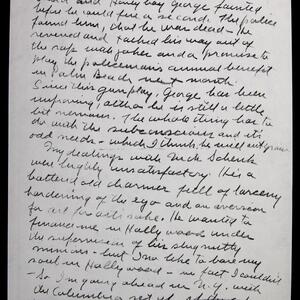 and Handy boy George fainted
before he could fire a second. The police
found him, that he was dead – he
revived and talked his way out of
the rap with jokes and a promise to
play the policeman's annual benefit
in Palm Beach next month.
Since this gunplay, George has been
improving, altho he is still a little
bit nervous. The whole thing has to
do with the subconscious and its
odd needs – which I think, he will outgrow
My dealings with Nick Schenck
were highly unsatisfactory. He's a
battered old charmer full of larceny
hardening of the ego and an aversion
for art for art's sake. He wanted to
finance me in Hollywood under
the supervision of his smutty
minions – but I'd like to bare my
soul in Hollywood – in fact I couldn't
– So I'm going ahead in N.Y. with
the Columbia